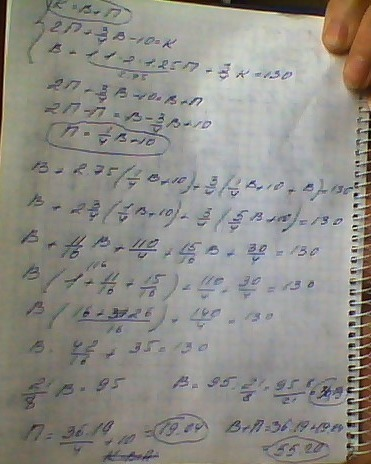 K = B+П
2П+3/4B-10=K
B + 1·1·2·1.25П + 3/4K=130
2.75
2П+3/4B-10=B+П
2П-П=B-3/4B+10
П=1/4B+10
B+2.75(1/4B+10)+3/4(1/4B+10+B)=130
B+2 3/4(1/4B+10)+3/4(5/4B+10)=130
B+11/16B+110/4+15/16B+30/4=130
B(1+11/16+15/16)+110/4+30/4=130
B(16+26/16)+140/4=130
B·42/16+35=130
21/8B=95 B=95:21/8=95·8/21=36.19
П=36.19/4+10=19.04 B+П=36.19+19.04
=55.20